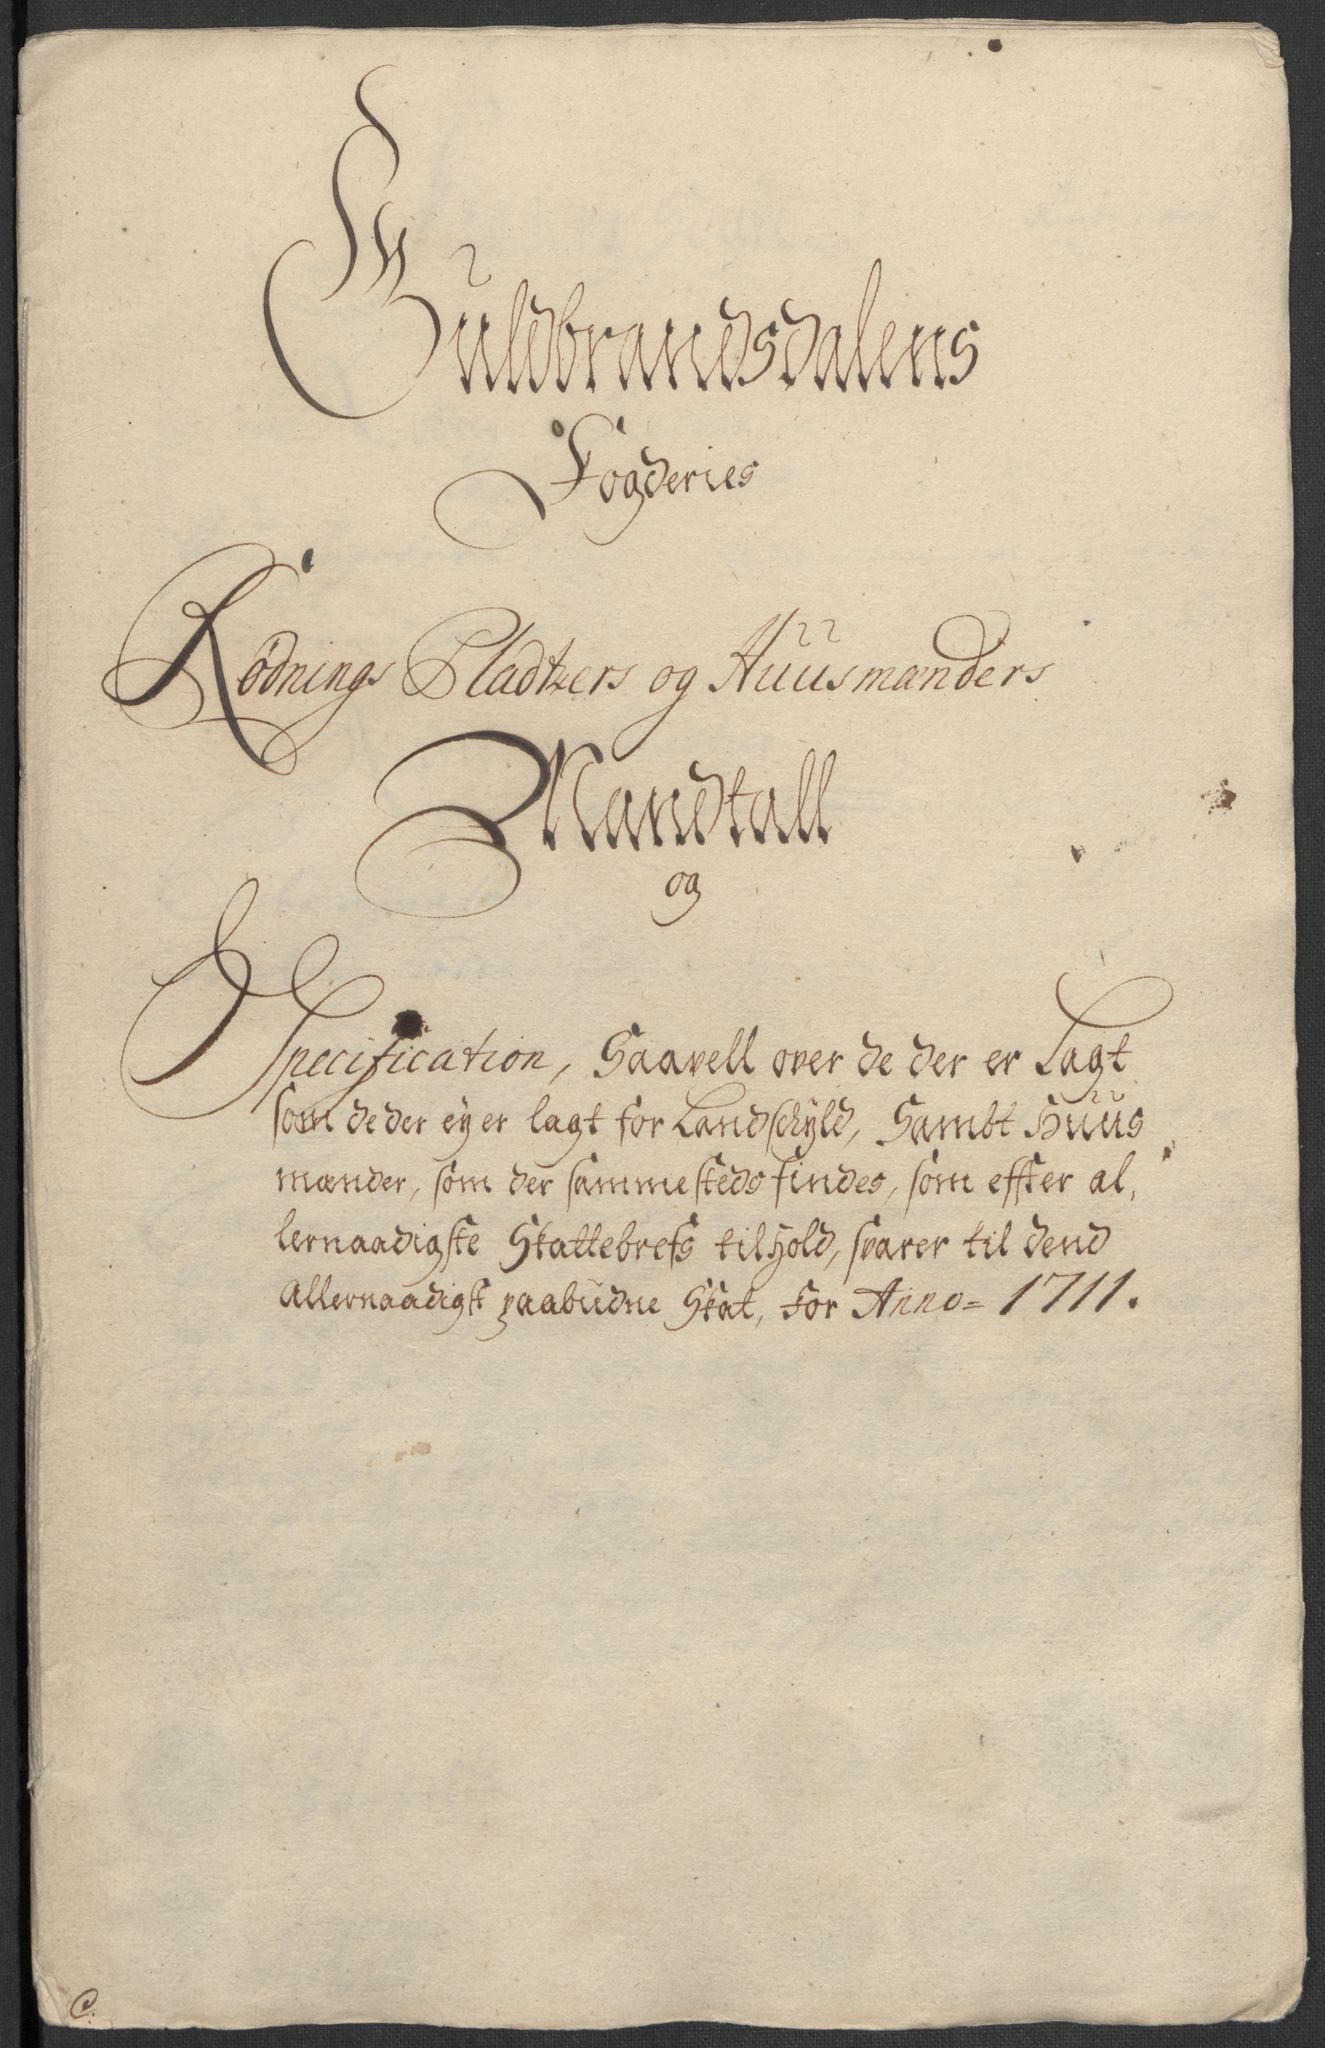 Guldbrandsdalens
Fogderies
Rödnings Pladtzers og Huusmænders
Mandtall
og
Specification, Saavell over de der er Lagt
som de der ey er lagt for Landschyld, Sambt Huus
mænder, som der sammesteds findes, som effter al,
lernaadigste Skattebrefs tilhold, svarer til dend
allernaadigst paabudne Skat, for Anno= 1711.
C.